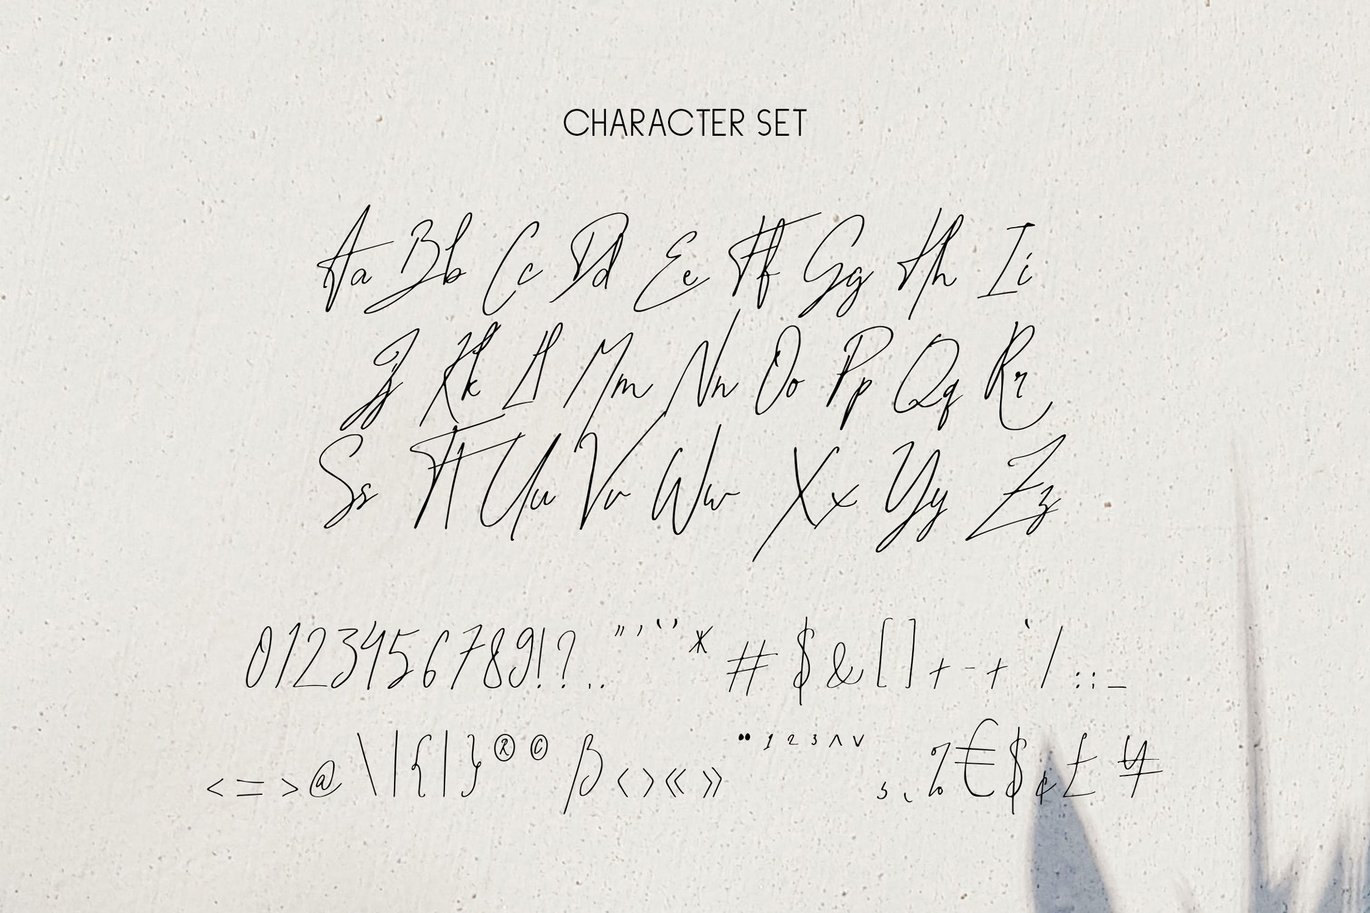 CHARACTER SET
Aa Bb Cc Dd Ee Ff Gg Hh Ii
Jj Kk Ll Mm Nn Oo Pp Qq Rr
Ss Tt Uu Vv Ww Xx Yy Zz
0123456789!?.. " ' ‘ ’ * # $ & [ ] + - + ` / : : _
< = > @ \ | { | } ® © β ‹ › « » ¨ ¹ ² ³ ^ ˅ ¸ ˛ % € $ ¢ £ ¥